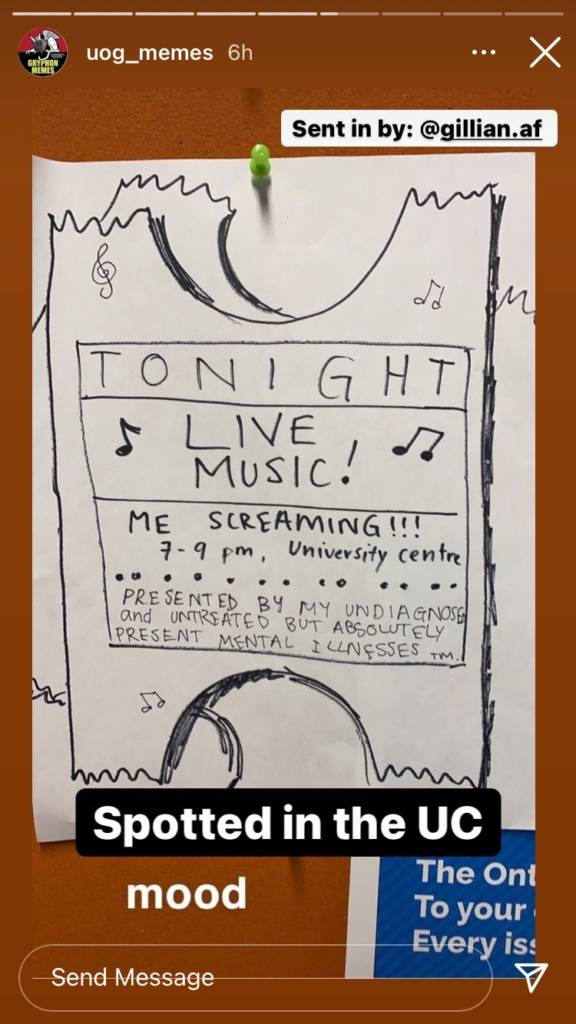 uog_memes 6h
GRYPHON
MEMES
Sent in by: @gillian.af
TONIGHT
LIVE
MUSIC!
ME SCREAMING!!!
7-9 pm, University centre
PRESENTED BY MY UNDIAGNOSED
and UNTREATED BUT ABSOLUTELY
PRESENT MENTAL ILLNESSES TM.
Spotted in the UC
mood
The Ont
To your
Every iss
Send Message